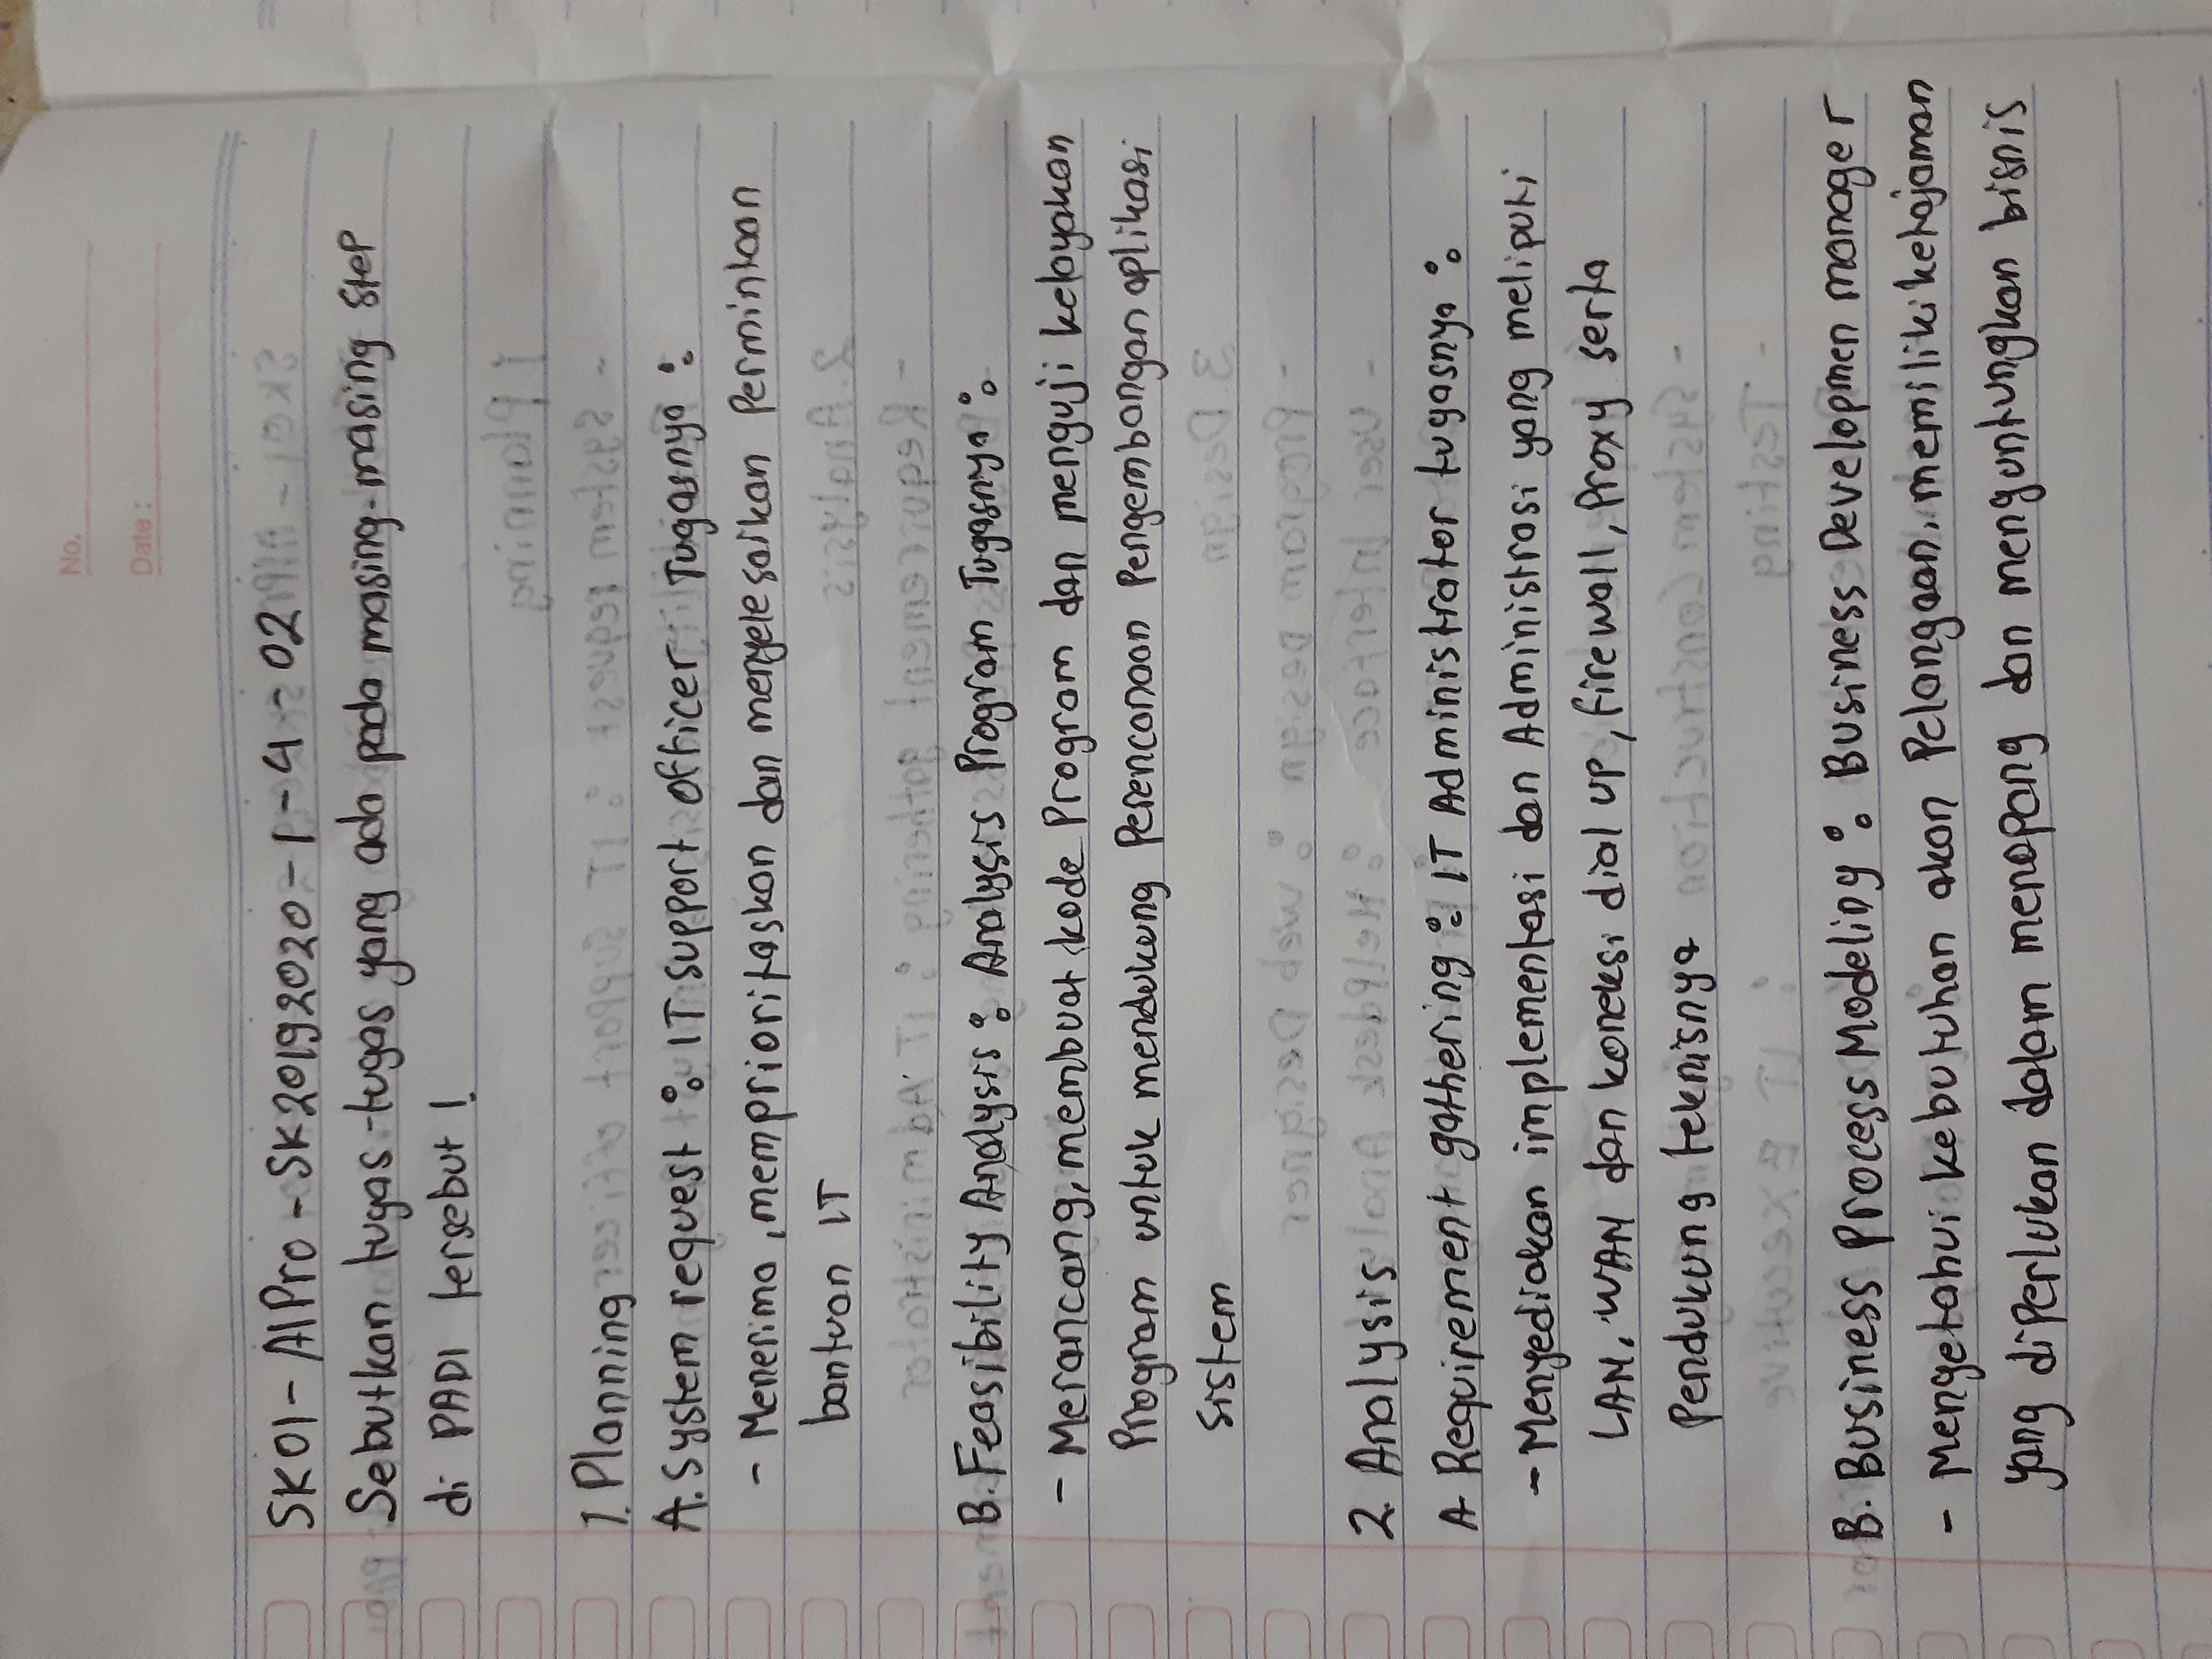 No.
Date :
SK01 - AlPro - SK20192020 - 1 - 4 - 02
Sebutkan tugas-tugas yang ada pada masing-masing step
di PADI tersebut !
1. Planning
A. System request : IT support officer Tugasnya :
- Menerima, memprioritaskan dan menyelesaikan Permintaan
bantuan IT
B. Feasibility Analysis : Analysis Program Tugasnya :
- Merancang, membuat kode Program dan menguji kelayakan
Program untuk mendukung Perencanaan Pengembangan aplikasi
sistem
2. Analysis
A Requirement gathering : IT Administrator tugasnya :
- Menyediakan implementasi dan Administrasi yang meliputi
LAN, WAN dan koneksi dial up, firewall, Proxy serta
Pendukung teknisnya
B. Business Process Modeling : Business Developmen manager
- Mengetahui kebutuhan akan Pelangaan, memiliki ketajaman
yang diperlukan dalam menopang dan menguntungkan bisnis